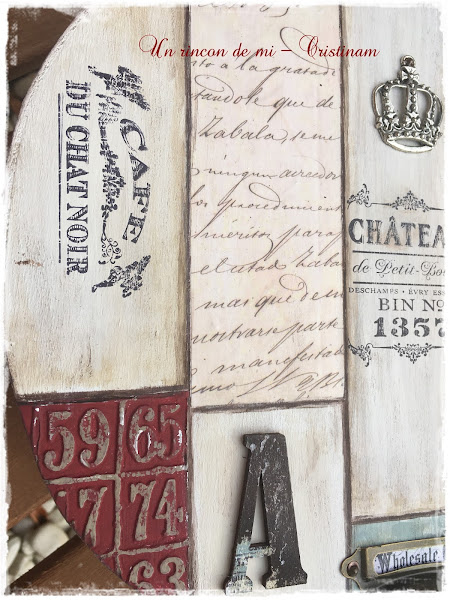 Un rincon de mi - Cristinam
CAFE
DU CHAT NOIR
to a la
que de
Zabala, se me
ningun
los procedimient
meritos para
el estad Zaba
mas que de m
mostrarse parte
manifestad
CHÂTEA
de Petit-Bo
DESCHAMPS · ÉVRY ESS
BIN NO
1357
59 65
17 74
63
A
Wholesale